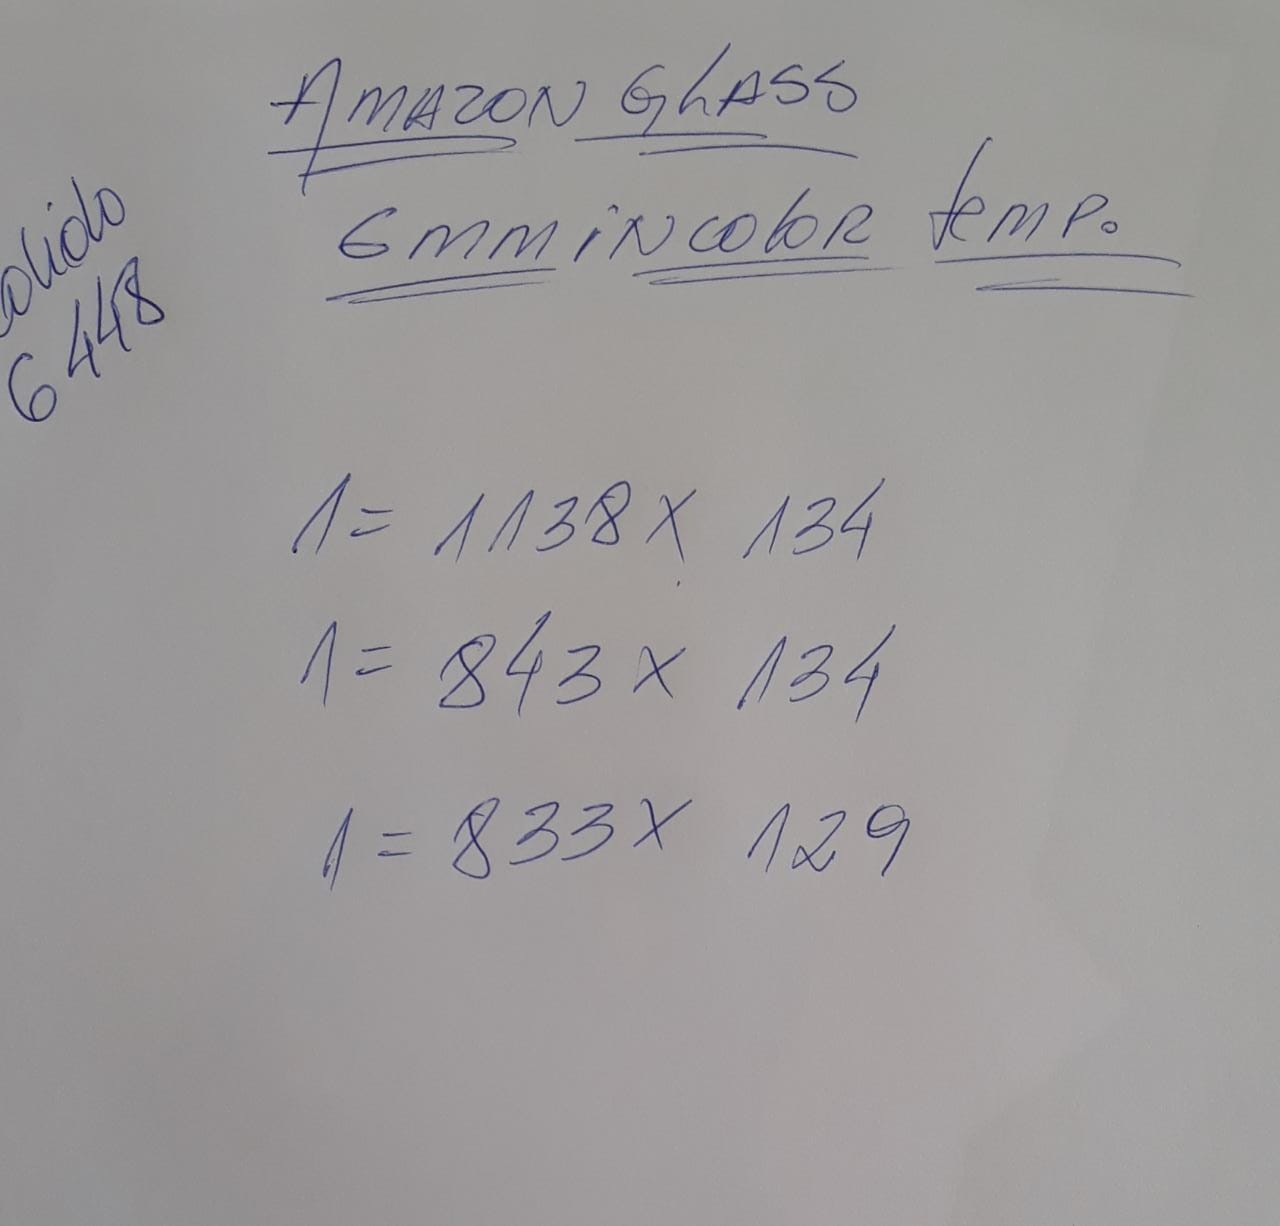 AMAZON GLASS
6mm iNcoloR temp.
6448
1= 1138 X 134
1= 843 X 134
1= 833 X 129